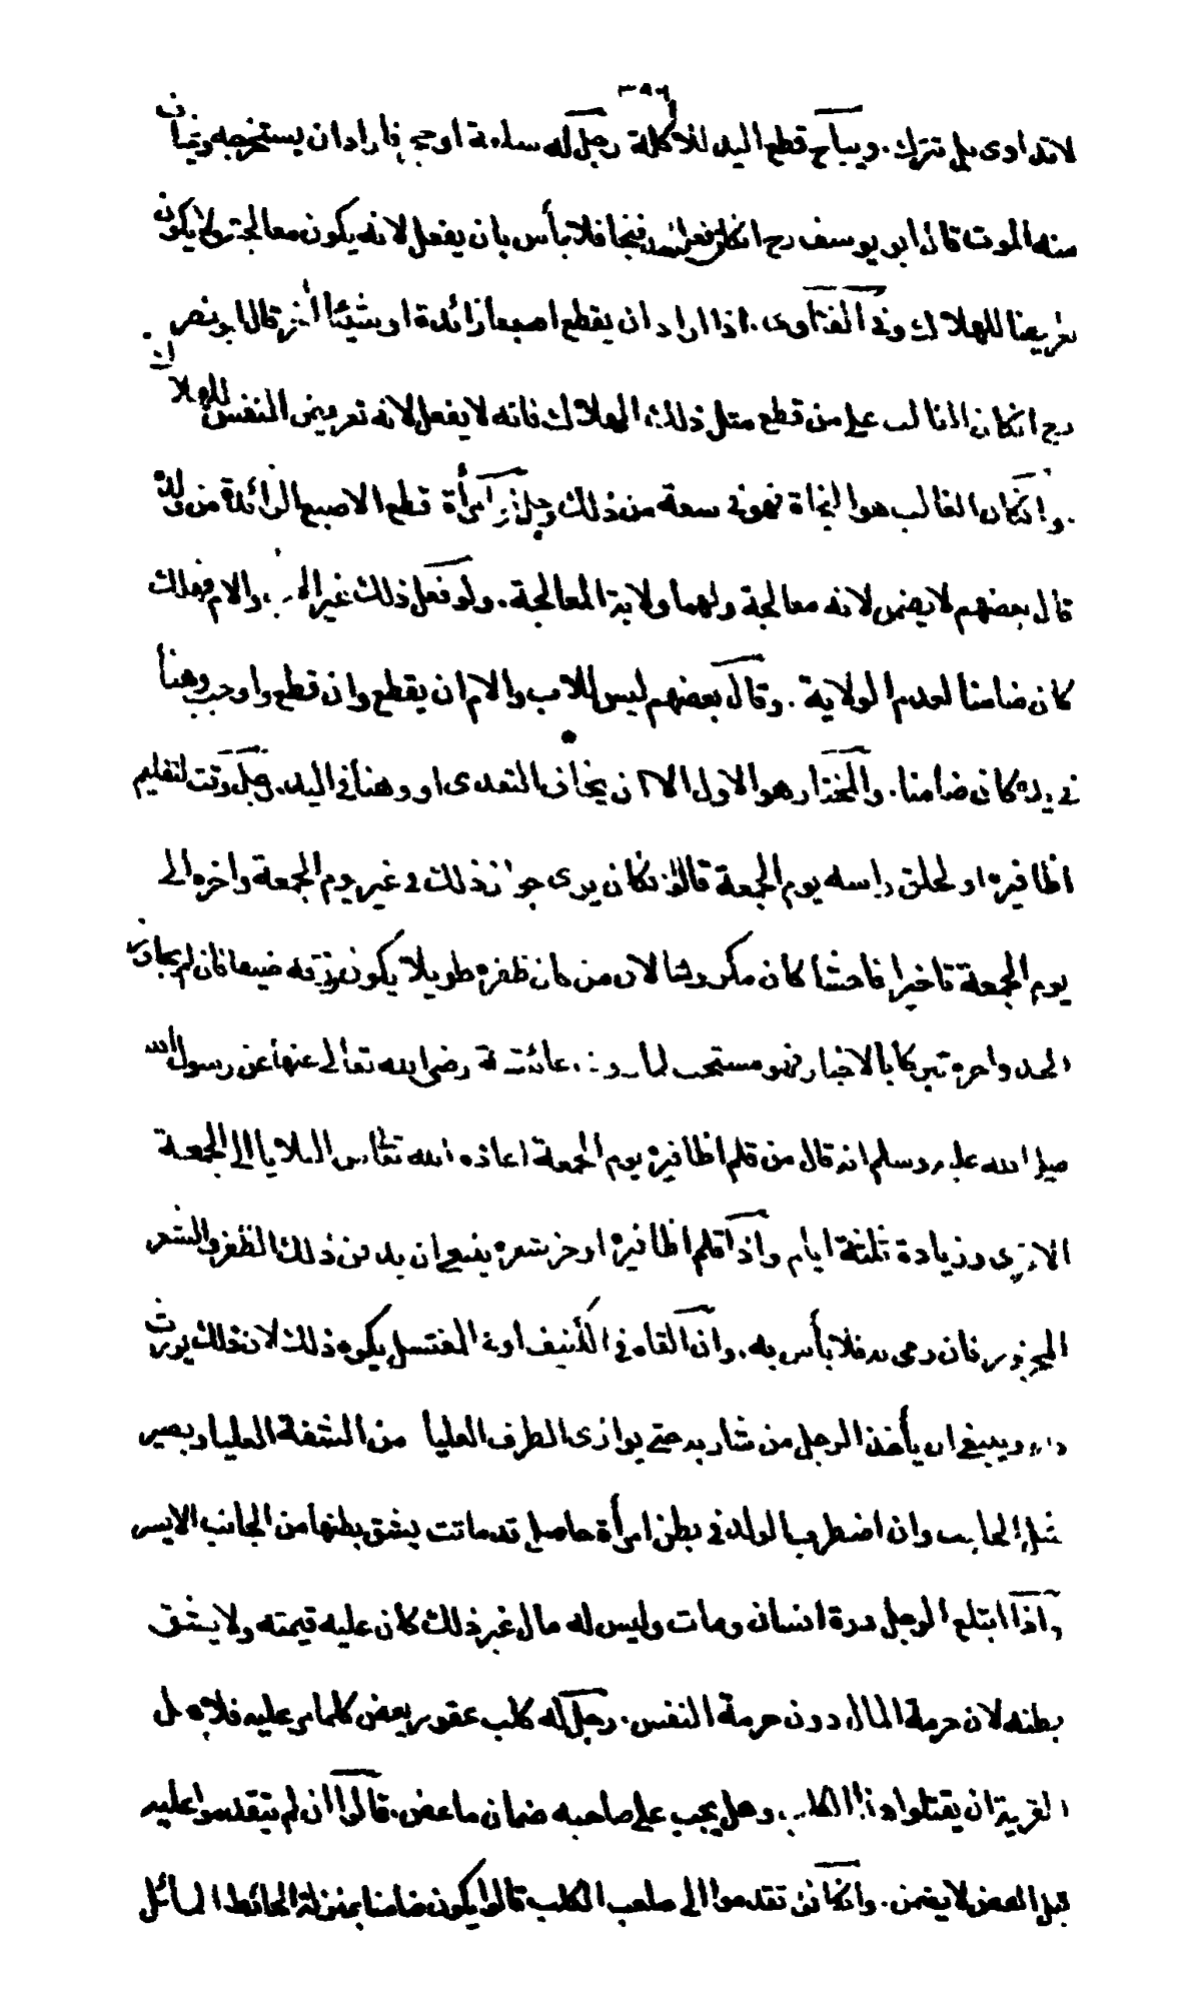 لا تداوى بل تترك. ويباح قطع اليد للاكلة رجل له سلعة او حجر فاراد ان يستخرجه ويخاف
منه الموت قال ابو يوسف رح انكان فعله احد فنجا فلا بأس بان يفعل لانه يكون معالجة ولا يكون
تعريضا للهلاك وفى الفتاوى. اذا اراد ان يقطع اصبعا زائدة او شيئا آخر قال ابو نصر
رح انكان الغالب على من قطع مثل ذلك الهلاك فانه لا يفعل لانه تعريض النفس للهلاك
. وانكان الغالب هو النجاة فهو فى سعة من ذلك رجل او امرأة قطع الاصبع الزائدة من ولده
قال بعضهم لا يضمن لانه معالجة ولهما ولاية المعالجة. ولو فعل ذلك غير الاب والام فهلك
كان ضامنا لعدم الولاية. وقال بعضهم ليس للاب والام ان يقطع وان قطع واوجب وهنا
فى يده كان ضامنا. والمختار هو الاول الا ان يخاف التعدى او وهنا فى اليد. رجل وقت لتقليم
اظافيره او لحلق رأسه يوم الجمعة قالوا انكان يرى جواز ذلك فى غير يوم الجمعة واخره الى
يوم الجمعة تاخيرا فاحشا كان مكروها لان من كان ظفره طويلا يكون رزقه ضيقا فان لم يجاوز
الحد واخره تبركا بالاخبار فهو مستحب لما روت عائشة رضى الله تعالى عنها عن رسول الله
صلى الله عليه وسلم انه قال من قلم اظافيره يوم الجمعة اعاذه الله تعالى من البلايا الى الجمعة
الاخرى وزيادة ثلثة ايام واذا قلم اظافيره او جز شعره ينبغى ان يدفن ذلك الظفر والشعر
المجزوز فان رمى به فلا بأس به. وان القاه فى الكنيف او فى المغتسل يكره ذلك لان ذلك يورث
داء وينبغى ان يأخذ الرجل من شاربه حتى يوازى الطرف العليا من الشفة العليا ويصير
مثل الحاجب وان اضطرب الولد فى بطن امرأة حامل قد ماتت يشق بطنها من الجانب الايسر
. واذا ابتلع الرجل درة انسان ومات وليس له مال غير ذلك كان عليه قيمته ولا يشق
بطنه لان حرمة المال دون حرمة النفس. رجل له كلب عقور يعض كلما مر عليه فلاهل
القرية ان يقتلوا هذا الكلب. وهل يجب على صاحبه ضمان ما عض. قالوا ان لم يتقدموا عليه
قبل العض لا يضمن. وانكانوا تقدموا الى صاحب الكلب قالوا يكون ضامنا بمنزلة الحائط المائل